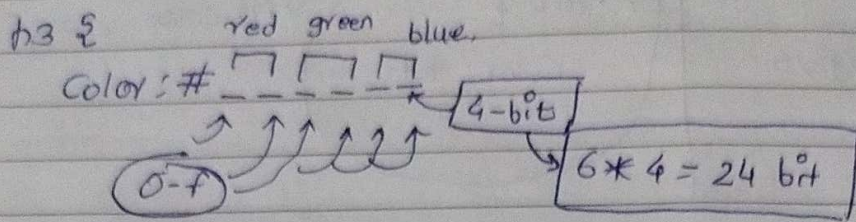 h3 {
red green blue.
Color : # _ _ _ _ _ _
4-bit
0-f
6 * 4 = 24 bit